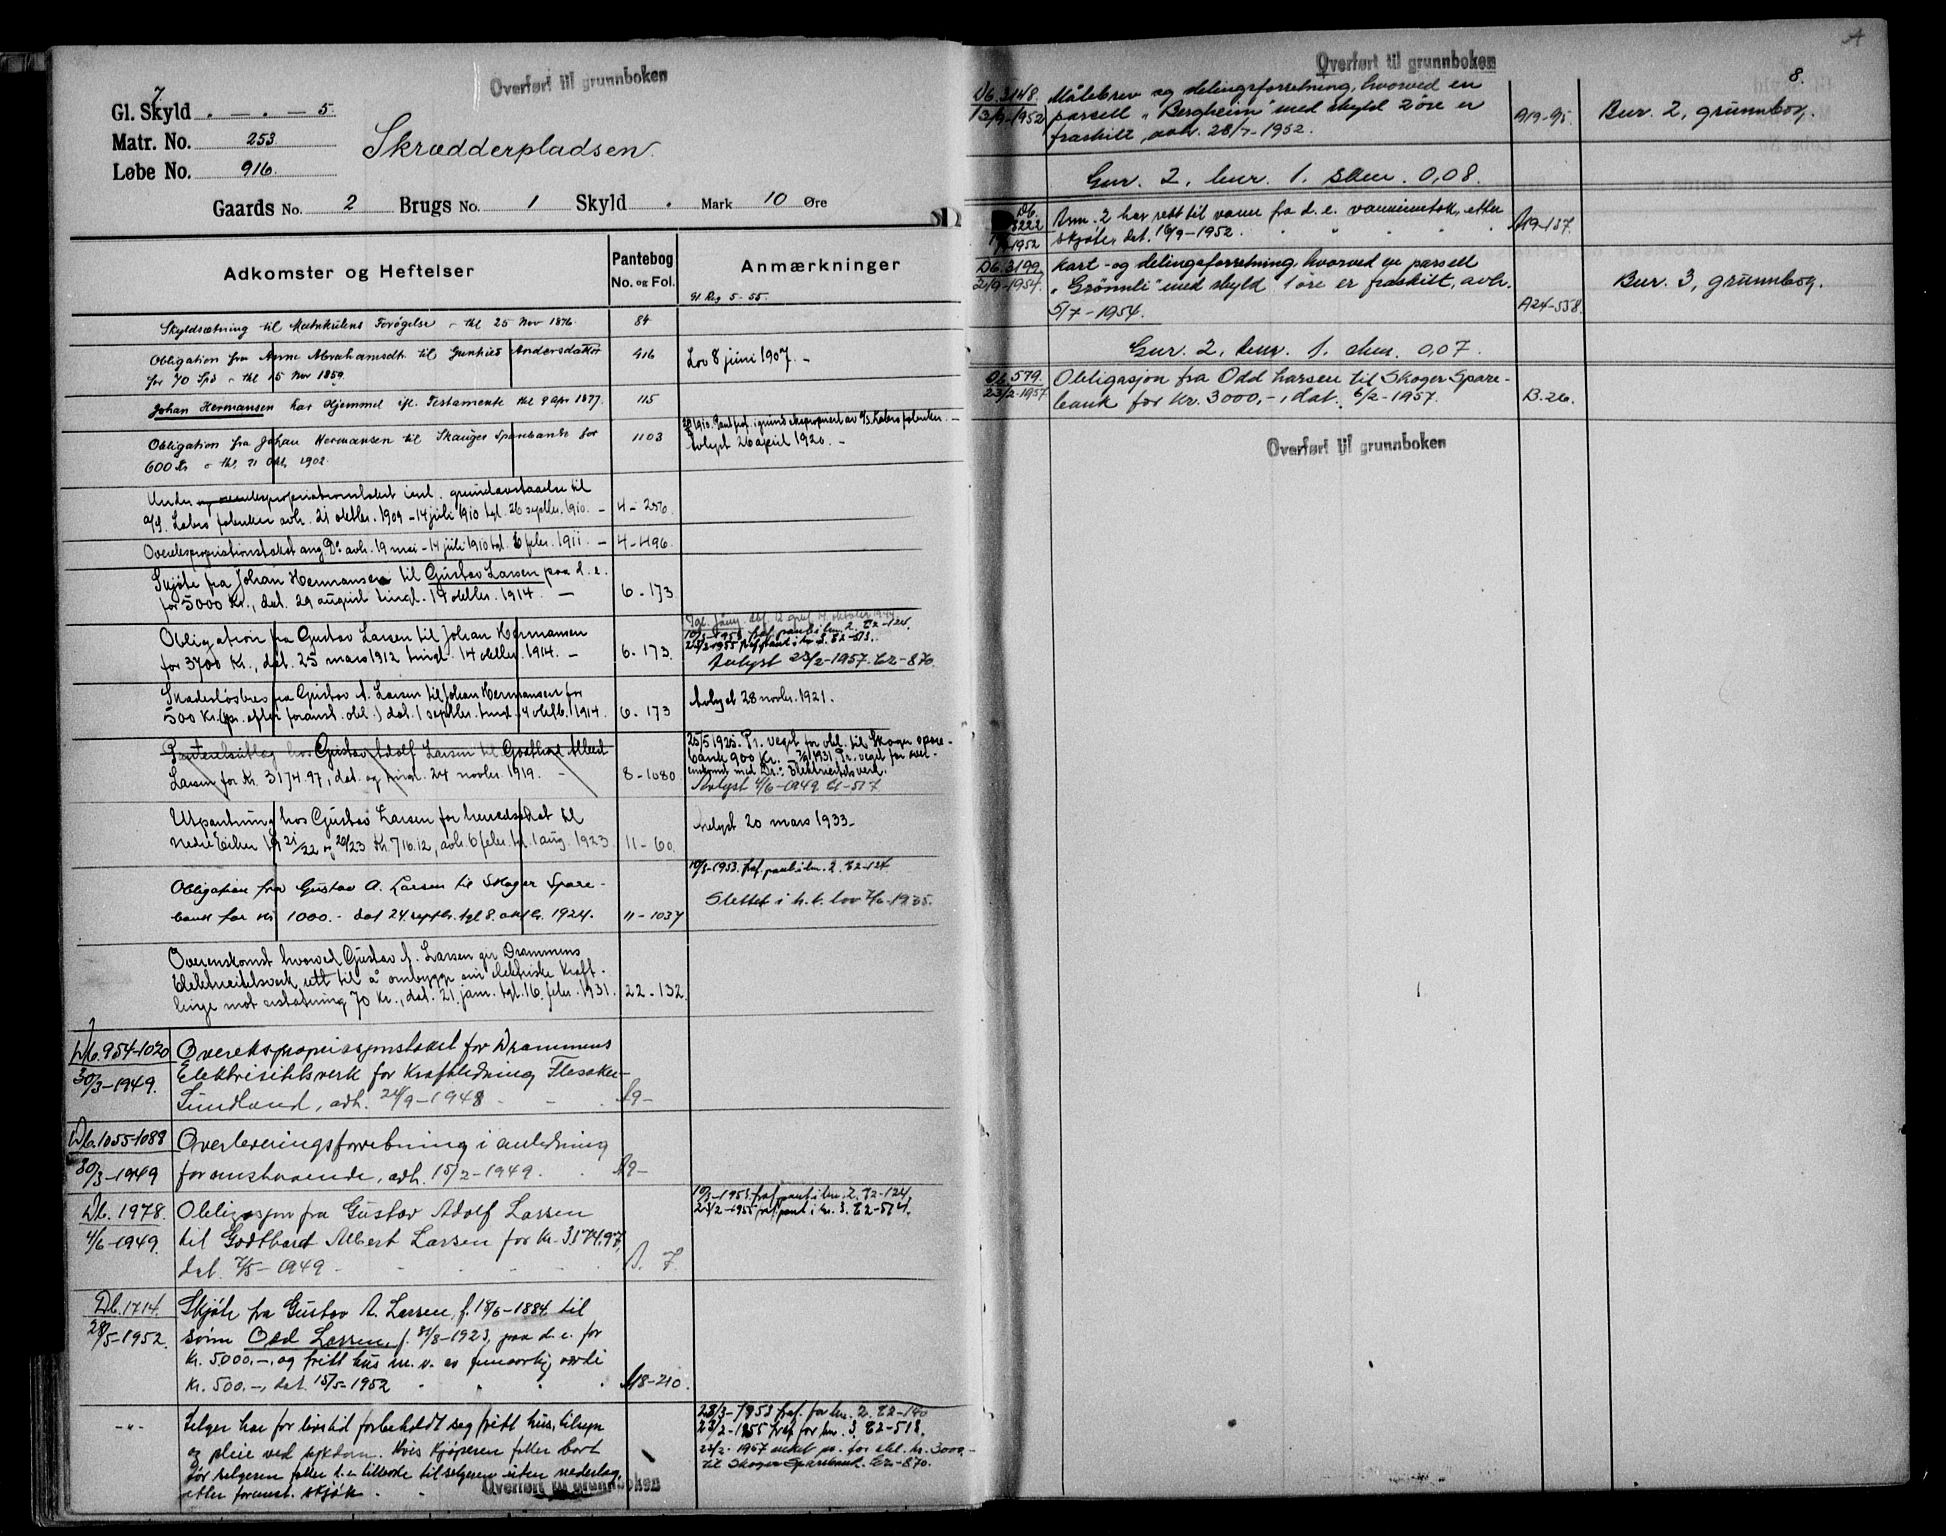 7
Overført til grunnboken
Gl. Skyld . — . — 5.
Matr. No. 253
Løbe No. 916.
Skrædderpladsen.
Gaards No. 2 Brugs No. 1 Skyld . Mark 10 Øre
Adkomster og Heftelser
Pantebog No. og Fol.
Anmærkninger
Gl Reg 5-55.
Skyldsætning til Matrikulens Forøgelse thl 25 Nov 1876. 84
Obligation fra Anne Abrahamsdt. til Gunhild Andersdatter 416 Lov 8 juni 1907. –
for 70 Spd thl 15 Nov 1859.
Johan Hermansen har Hjemmel ifl. Testamente thl 9 apr 1877. 115
Obligation fra Johan Hermansen til Skauger Sparebank for 1103
600 Kr thl. 21 Okt. 1902.
Avlyst 26 april 1920. –
Under
grundavstaaelse til
A/S. Labro avh. 21 oktbr. 1909 – 14 juli 1910 tgl. 26 septbr. 1910. – 4-256.
Overekspropriationstakst ang Do avh. 19 mai – 14 juli 1910 tgl. 6 febr. 1911. – 4-496.
Skjøte fra Johan Hermansen til Gustav Larsen paa d. e.
for 5000 Kr., dat. 29 august tingl. 14 oktbr. 1914. – 6-173
Obligation fra Gustav Larsen til Johan Hermansen
for 3700 Kr., dat. 25 mars 1912 tingl. 14 oktbr. 1914. – 6-173.
10/3-1953 fraf. pant i bnr. 2. E2-124.
23/2-1955 fraf. pant i bnr 3. E2-513.
Avlyst 23/2-1957. E2-870.
Skadesløsbrev fra Gustav A. Larsen til Johan Hermansen for
500 Kr. (pr. efter foranst. obl.) dat. 1 septbr. tingl. 14 oktb. 1914. 6-173
Avlyst 28 novbr. 1921.
Panteutlæg hos Gustav Adolf Larsen til Godthard Albert
Larsen for Kr. 3174.97, dat. og tingl. 24 novbr. 1919. – 8-1080
25/5 1925. Pr. veget for obl. til Skoger spare-
bank 900 Kr. Pr. veget for over-
enskomst med Dr.: Elektricitetsverk.
Avlyst 4/6-1949. E1-517
Utpantning hos Gustav Larsen for herredsskat til
Nedre Eiker 19 21/22 og 22/23 Kr. 716.12, avh. 6 febr. tgl. 1 aug. 1923. 11-60.
Avlyst 20 mars 1933.
Obligation fra Gustav A. Larsen til Skoger Spare-
bank for Kr 1000.- dat 24 septbr. tgl 8. oktbr. 1924. 11-1037
10/3-1953. fraf. pant i bnr. 2. E2-124
Slettet i h. t. lov 7/6-1935.
Overenskomst hvorved Gustav A. Larsen gir Drammens
Elektricitetsverk rett til å ombygge sin elektriske kraft-
linje mot erstatning 70 Kr., dat. 21. jan. tgl. 16. febr. 1931. 22-132.
Db. 954-1020
30/3-1949.
Overekspropriasjonstakst for Drammens
Elektrisitetsverk for kraftledning Flesaker–
Sundland, avh. 24/9-1948 A9-
Db. 1055-1088
30/3-1949
Overleveringsforretning i anledning
foranstaaende, avh. 15/2-1949. A9-
Db. 1978.
4/6-1949.
Obligasjon fra Gustav Adolf Larsen
til Godthard Albert Larsen for kr. 3174.97,
dat. 7/5-1949 – B. 7.
10/3-1953. fraf. pant i bnr. 2. E2-124,
23/2-1955 fraf. pant i bnr. 3. E2-514.
Db. 1714.
28/5-1952.
Skjøte fra Gustav A. Larsen, f. 18/6-1884 til
sønn Odd Larsen, f. 31/8-1923, paa d. e. for
kr. 5000.-, og fritt hus m. v. av femaarlig verdi
kr. 500.-, dat. 15/5-1952 A18-210.
-"-
Selger har for livstid forbeholdt seg fritt hus, tilsyn
og pleie ved sykdom. Hvis kjøperen faller bort
før selgeren faller d. e. tilbake til selgeren uten vederlag,
etter foranst. skjøte.
23/3-1953 fraf. for bnr. 2. E2-140
23/2-1955 fraf for bnr. 3. E2-518.
23/2-1957 veket pr. for obl. kr. 3000,-
til Skoger Sparebank. E2-870.
Overført til grunnboken
A
8.
Overført til grunnboken
Db. 3148
13/9-1952
Målebrev og delingsforretning, hvorved en
parsell "Bergheim" med skyld 2 øre er
fraskilt, avh. 28/7-1952. A19-95. Bnr. 2, grunnbog.
Gnr. 2, bnr. 1. skm. 0,08.
Db. 3222
1952
Bnr. 2 har rett til vann fra d. e. vanninntak, etter
skjøte, dat. 16/9-1952. A19-137.
Db. 3199,
21/9-1954.
Kart- og delingsforretning hvorved en parsell
"Grønnli" med skyld 1 øre er fraskilt, avh.
5/7-1954. A24-558. Bnr. 3, grunnbog.
Gnr. 2, bnr. 1. skm. 0,07.
Db. 579.
23/2-1957
Obligasjon fra Odd Larsen til Skoger Spare-
bank for kr. 3000,-, dat. 6/2-1957. B. 26.
Overført til grunnboken